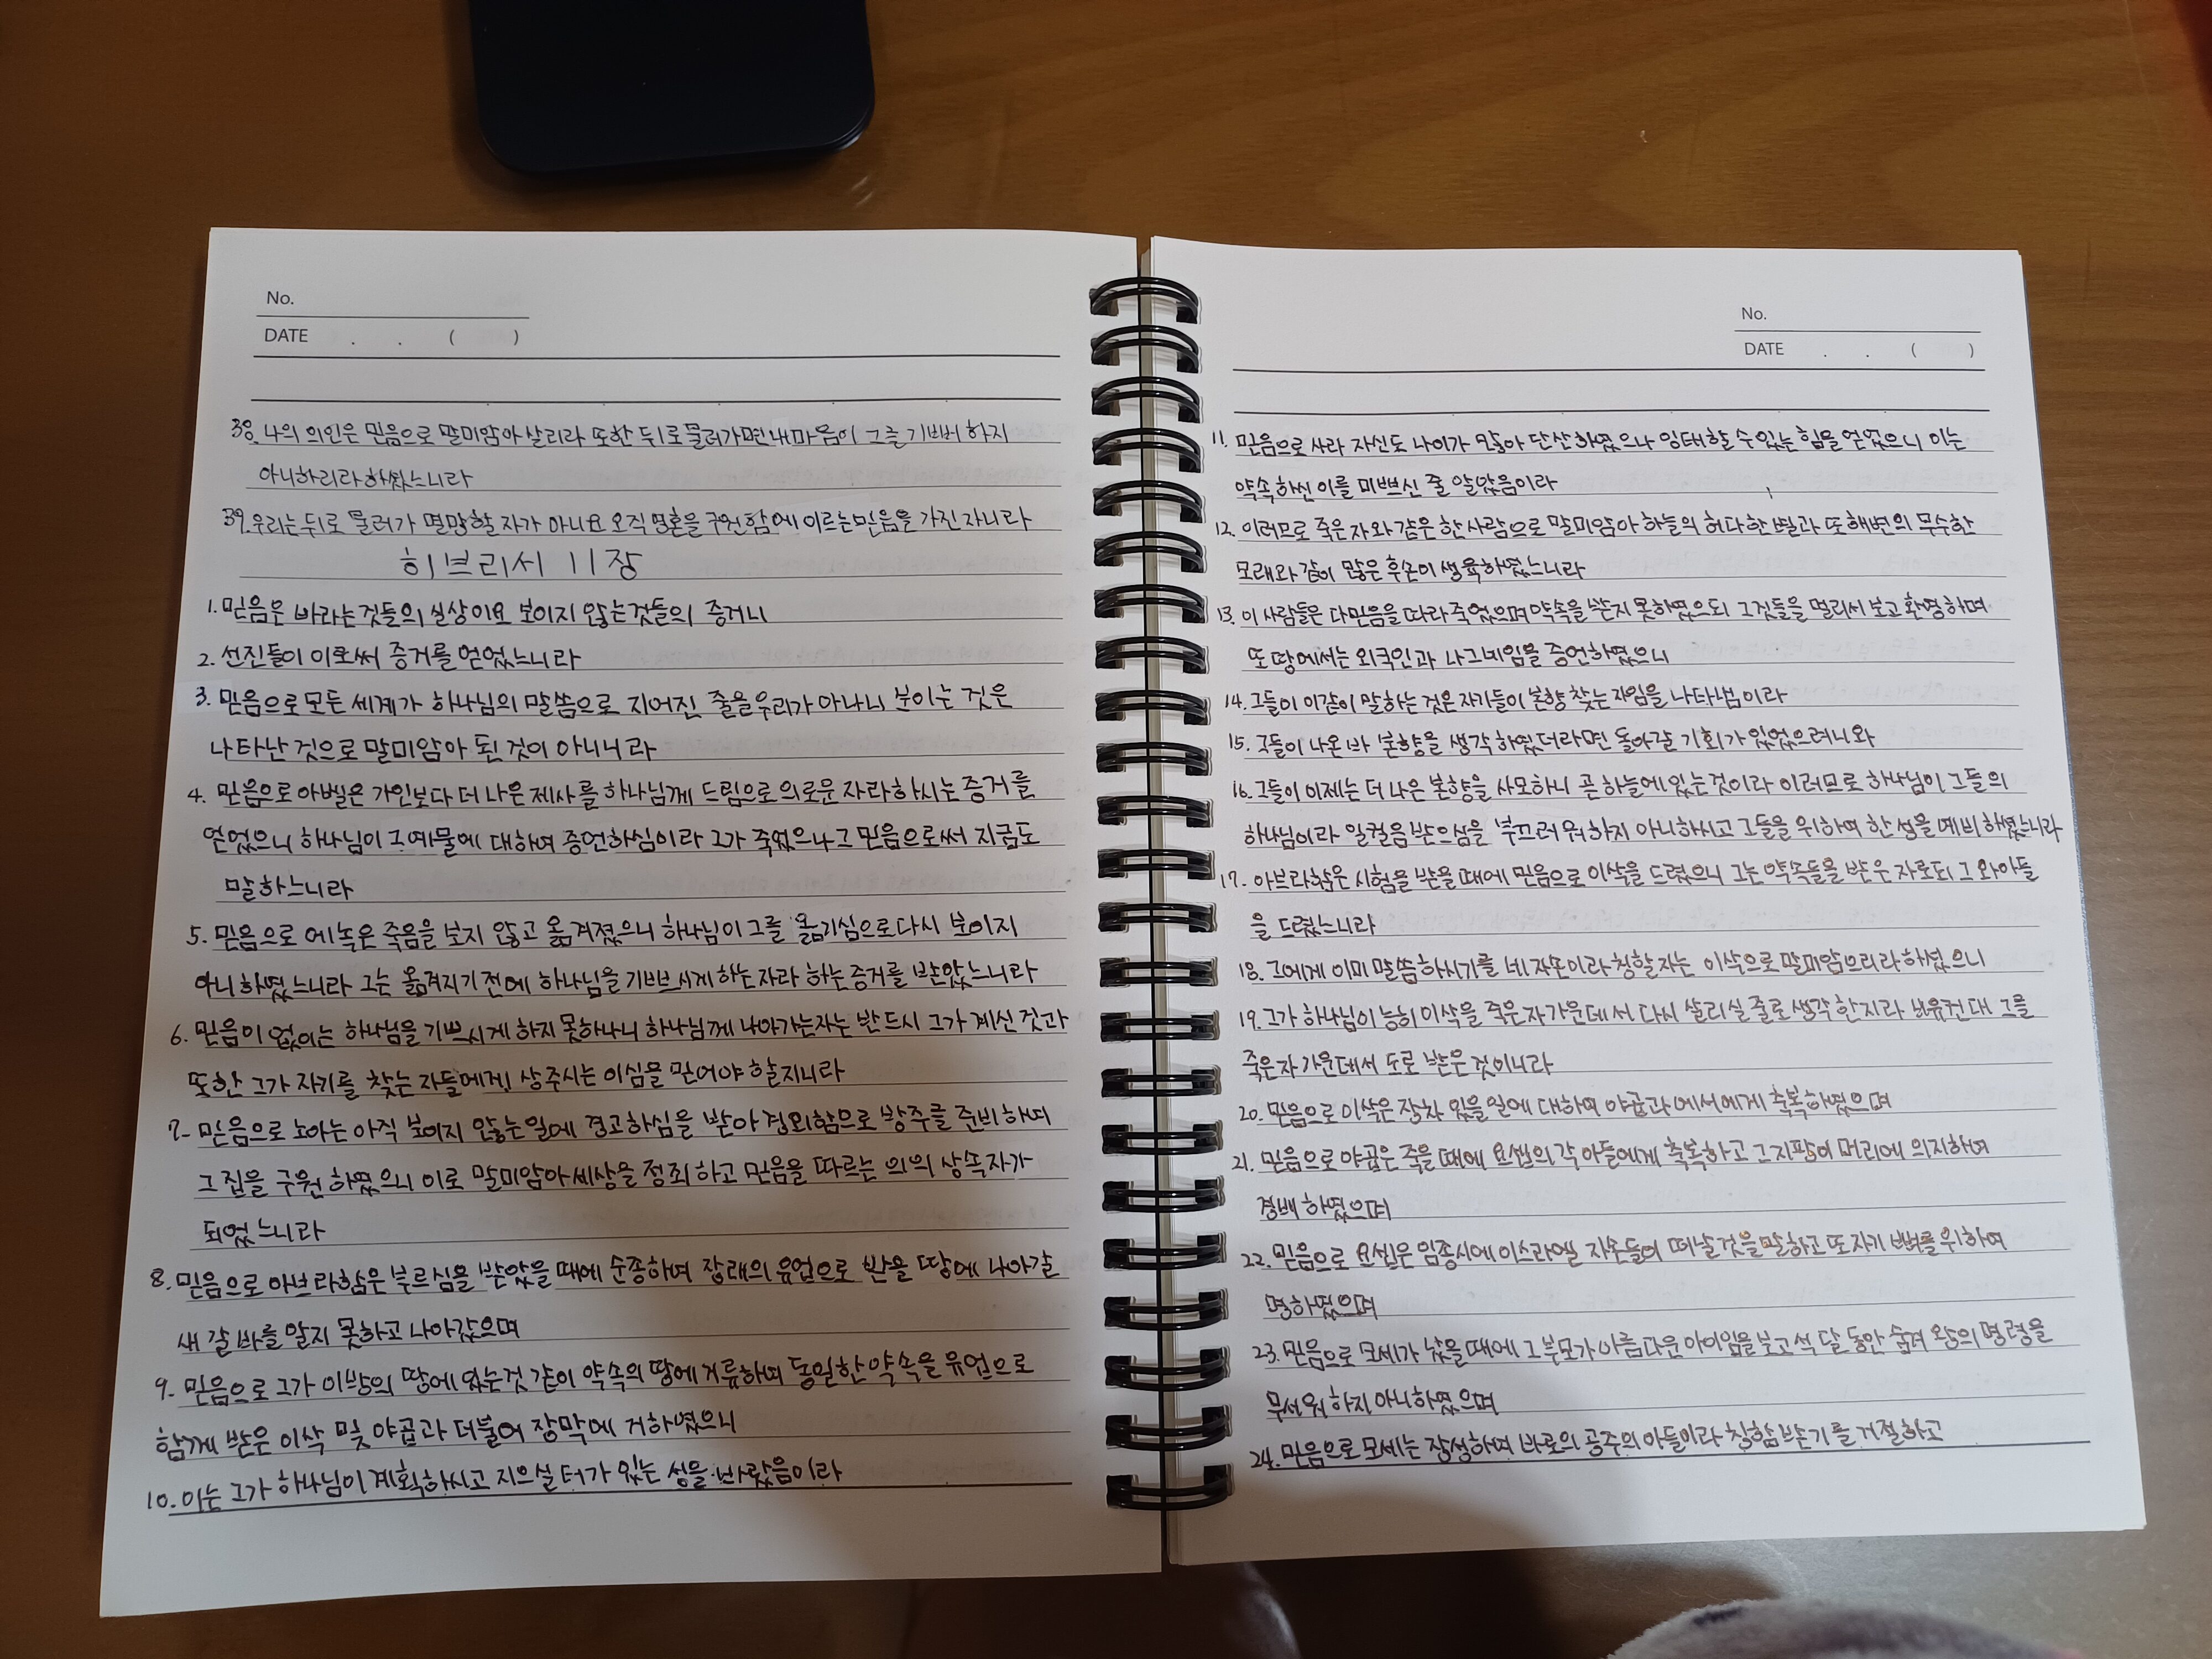 No.
DATE . . ( )
38. 나의 의인은 믿음으로 말미암아 살리라 또한 뒤로 물러가면 내 마음이 그를 기뻐하지
아니하리라 하셨느니라
39. 우리는 뒤로 물러가 멸망할 자가 아니요 오직 영혼을 구원함에 이르는 믿음을 가진 자니라
히브리서 11장
1. 믿음은 바라는 것들의 실상이요 보이지 않는 것들의 증거니
2. 선진들이 이로써 증거를 얻었느니라
3. 믿음으로 모든 세계가 하나님의 말씀으로 지어진 줄을 우리가 아나니 보이는 것은
나타난 것으로 말미암아 된 것이 아니니라
4. 믿음으로 아벨은 가인보다 더 나은 제사를 하나님께 드림으로 의로운 자라 하시는 증거를
얻었으니 하나님이 그 예물에 대하여 증언하심이라 그가 죽었으나 그 믿음으로써 지금도
말하느니라
5. 믿음으로 에녹은 죽음을 보지 않고 옮겨졌으니 하나님이 그를 옮기심으로 다시 보이지
아니하였느니라 그는 옮겨지기 전에 하나님을 기쁘시게 하는 자라 하는 증거를 받았느니라
6. 믿음이 없이는 하나님을 기쁘시게 하지 못하나니 하나님께 나아가는 자는 반드시 그가 계신 것과
또한 그가 자기를 찾는 자들에게 상주시는 이심을 믿어야 할지니라
7. 믿음으로 노아는 아직 보이지 않는 일에 경고하심을 받아 경외함으로 방주를 준비하여
그 집을 구원하였으니 이로 말미암아 세상을 정죄하고 믿음을 따르는 의의 상속자가
되었느니라
8. 믿음으로 아브라함은 부르심을 받았을 때에 순종하여 장래의 유업으로 받을 땅에 나아갈
새 갈 바를 알지 못하고 나아갔으며
9. 믿음으로 그가 이방의 땅에 있는 것 같이 약속의 땅에 거류하여 동일한 약속을 유업으로
함께 받은 이삭 및 야곱과 더불어 장막에 거하였으니
10. 이는 그가 하나님이 계획하시고 지으실 터가 있는 성을 바랐음이라
No.
DATE . . ( )
11. 믿음으로 사라 자신도 나이가 많아 단산하였으나 잉태할 수 있는 힘을 얻었으니 이는
약속하신 이를 미쁘신 줄 알았음이라
12. 이러므로 죽은 자와 같은 한 사람으로 말미암아 하늘의 허다한 별과 또 해변의 무수한
모래와 같이 많은 후손이 생육하였느니라
13. 이 사람들은 다 믿음을 따라 죽었으며 약속을 받지 못하였으되 그것들을 멀리서 보고 환영하며
또 땅에서는 외국인과 나그네임을 증언하였으니
14. 그들이 이같이 말하는 것은 자기들이 본향 찾는 자임을 나타냄이라
15. 그들이 나온 바 본향을 생각하였더라면 돌아갈 기회가 있었으려니와
16. 그들이 이제는 더 나은 본향을 사모하니 곧 하늘에 있는 것이라 이러므로 하나님이 그들의
하나님이라 일컬음 받으심을 부끄러워하지 아니하시고 그들을 위하여 한 성을 예비하셨느니라
17. 아브라함은 시험을 받을 때에 믿음으로 이삭을 드렸으니 그는 약속들을 받은 자로되 그 외아들
을 드렸느니라
18. 그에게 이미 말씀하시기를 네 자손이라 칭할 자는 이삭으로 말미암으리라 하셨으니
19. 그가 하나님이 능히 이삭을 죽은 자 가운데서 다시 살리실 줄로 생각한지라 비유컨대 그를
죽은 자 가운데서 도로 받은 것이니라
20. 믿음으로 이삭은 장차 있을 일에 대하여 야곱과 에서에게 축복하였으며
21. 믿음으로 야곱은 죽을 때에 요셉의 각 아들에게 축복하고 그 지팡이 머리에 의지하여
경배하였으며
22. 믿음으로 요셉은 임종시에 이스라엘 자손들이 떠날 것을 말하고 또 자기 뼈를 위하여
명하였으며
23. 믿음으로 모세가 났을 때에 그 부모가 아름다운 아이임을 보고 석 달 동안 숨겨 왕의 명령을
무서워하지 아니하였으며
24. 믿음으로 모세는 장성하여 바로의 공주의 아들이라 칭함 받기를 거절하고